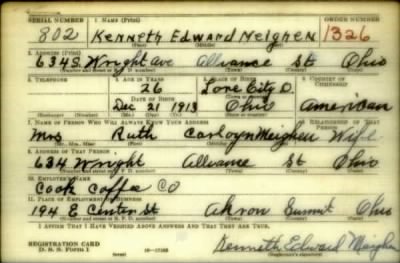 SERIAL NUMBER 1. NAME (Print) ORDER NUMBER
802 Kenneth Edward Meighen 1326
(First) (Middle) (Last)
2. ADDRESS (Print)
634 S. Wright Ave Alliance St Ohio
(Number and street or R. F. D. number) (Town) (County) (State)
3. TELEPHONE 4. AGE IN YEARS 5. PLACE OF BIRTH 6. COUNTRY OF CITIZENSHIP
26 Lore City O.
DATE OF BIRTH (Town or county)
Dec 21 1913 Ohio American
(Exchange) (Number) (Mo.) (Day) (Yr.) (State or country)
7. NAME OF PERSON WHO WILL ALWAYS KNOW YOUR ADDRESS 8. RELATIONSHIP OF THAT PERSON
Mrs Ruth Carloyn Meighen Wife
(Mr., Mrs., Miss) (First) (Middle) (Last)
9. ADDRESS OF THAT PERSON
634 Wright Alliance St Ohio
(Number and street or R. F. D. number) (Town) (County) (State)
10. EMPLOYER'S NAME
Cook Coffee Co
11. PLACE OF EMPLOYMENT OR BUSINESS
194 E Center St Akron Summit Ohio
(Number and street or R. F. D. number) (Town) (County) (State)
I AFFIRM THAT I HAVE VERIFIED ABOVE ANSWERS AND THAT THEY ARE TRUE.
REGISTRATION CARD Kenneth Edward Meighen
D. S. S. Form 1 (over) 16—17105 (Registrant's signature)